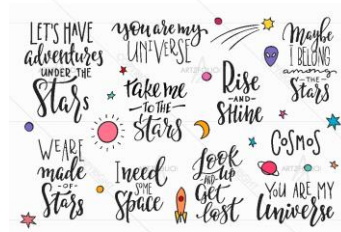 LET'S HAVE
adventures
UNDER THE
Stars
you are my
UNIVERSE
Maybe
I BELONG
among
THE
Stars
take me
TO THE
Stars
Rise
AND
Shine
WE ARE
made
OF
Stars
I need
SOME
Space
Look
up
and
Get
lost
COSMOS
YOU ARE MY
Universe